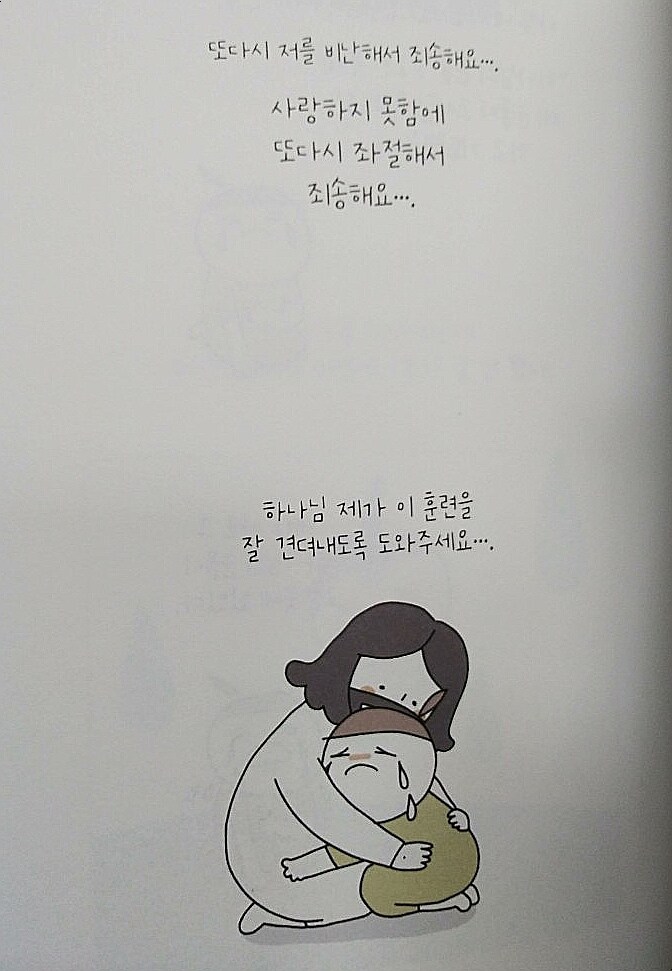 또다시 저를 비난해서 죄송해요....
사랑하지 못함에
또다시 좌절해서
죄송해요....
하나님 제가 이 훈련을
잘 견뎌내도록 도와주세요....